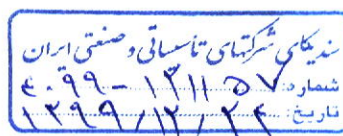 سندیکای شرکتهای تأسیساتی و صنعتی ایران
شماره: ۴۰۹۹-۱۳۱۱۵۷
تاریخ: ۱۳۹۹/۱۲/۲۴